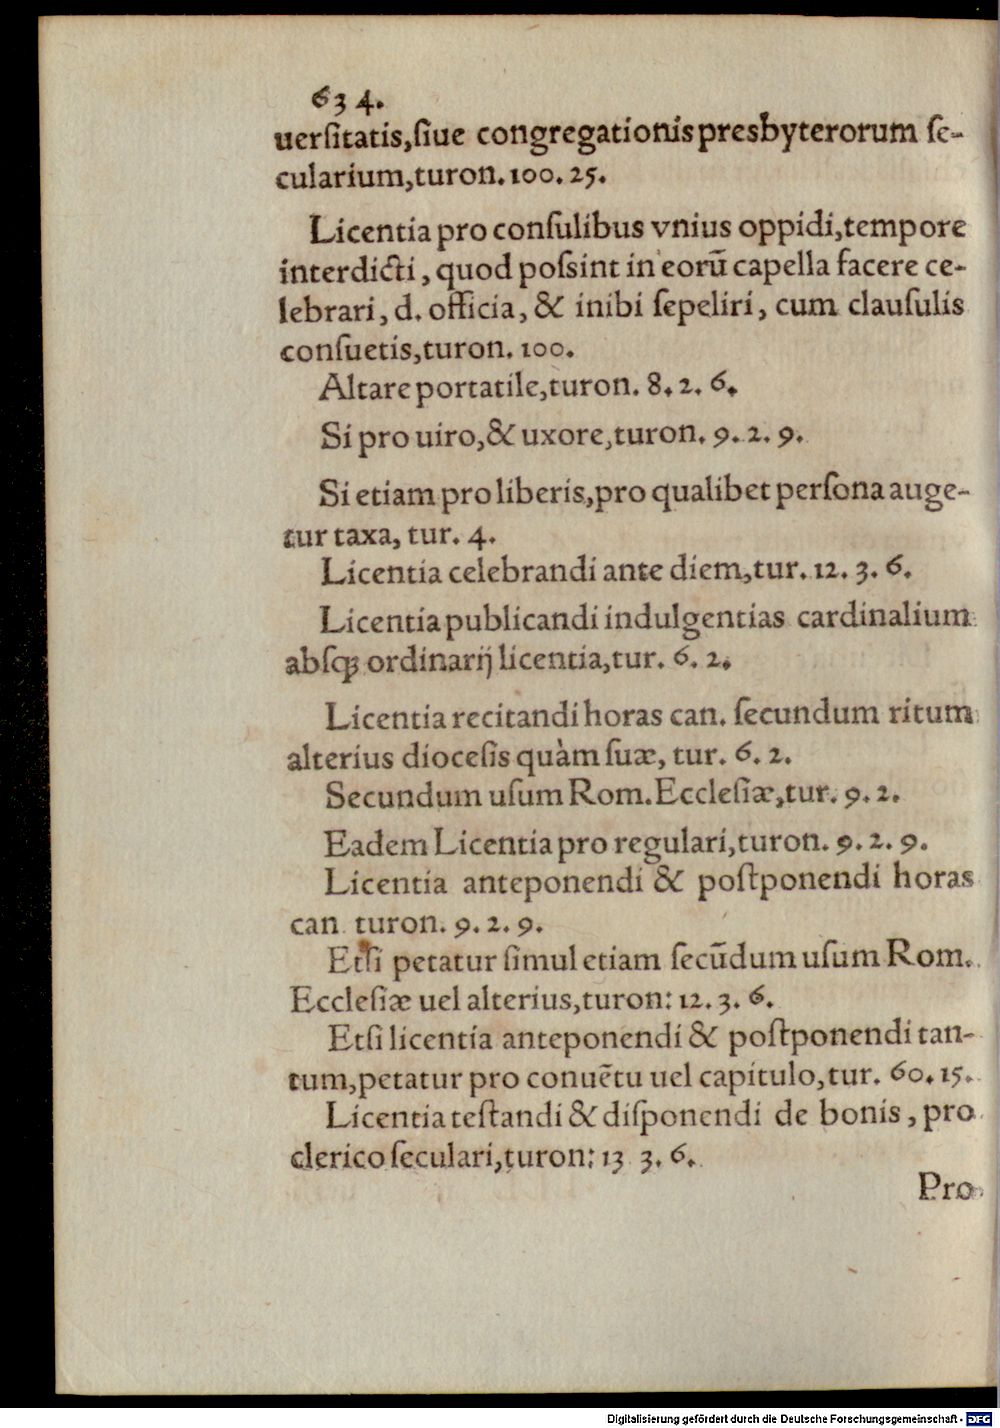 634.
uersitatis,siue congregationis presbyterorum se-
cularium,turon.100.25.
Licentia pro consulibus vnius oppidi,tempore
interdicti, quod possint in eorū capella facere ce-
lebrari, d. officia, & inibi sepeliri, cum clausulis
consuetis,turon. 100.
Altare portatile,turon. 8. 2. 6.
Si pro uiro,& uxore,turon. 9. 2. 9.
Si etiam pro liberis,pro qualibet persona auge-
tur taxa, tur. 4.
Licentia celebrandi ante diem,tur. 12. 3. 6.
Licentia publicandi indulgentias cardinalium
absqꝫ ordinarij licentia,tur. 6. 2.
Licentia recitandi horas can. secundum ritum
alterius diocesis quàm suæ, tur. 6. 2.
Secundum usum Rom.Ecclesiæ,tur. 9. 2.
Eadem Licentia pro regulari,turon. 9. 2. 9.
Licentia anteponendi & postponendi horas
can turon. 9. 2. 9.
Etsi petatur simul etiam secūdum usum Rom.
Ecclesiæ uel alterius,turon: 12. 3. 6.
Etsi licentia anteponendi & postponendi tan-
tum,petatur pro conuētu uel capitulo,tur. 60. 15.
Licentia testandi & disponendi de bonis, pro
clerico seculari,turon: 13 3. 6.
Pro
Digitalisierung gefördert durch die Deutsche Forschungsgemeinschaft - DFG